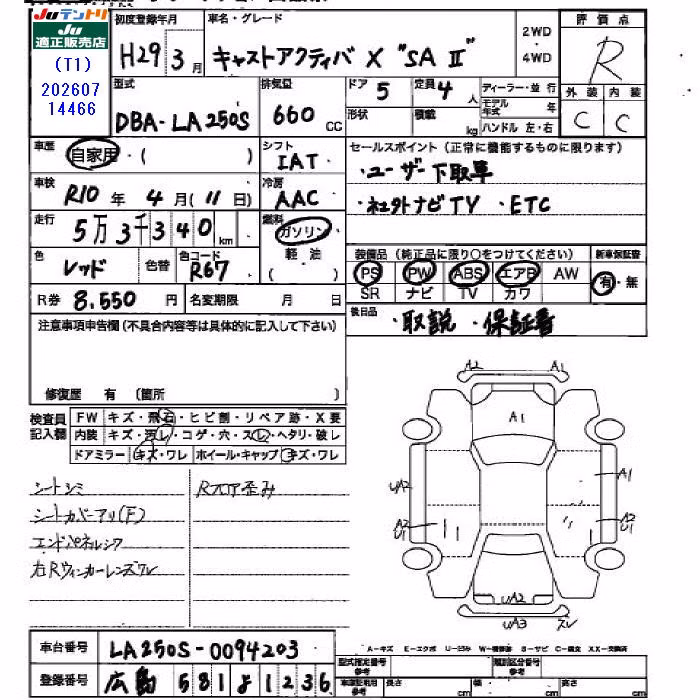 JUテントリ
JU
適正販売店
(T1)
202607
14466
初度登録年月
H29 3月
車名・グレード
キャストアクティバ X "SA II"
2WD
・
4WD
評価点
R
型式
DBA-LA250S
排気量
660 CC
ドア 5
定員 4 人
形状
積載 kg
ディーラー・並行
モデル年式 年
ハンドル 左・右
外装 内装
C C
車歴 自家用・( )
シフト
IAT
車検 R10年 4月(11日)
冷房
AAC
走行 5万3千340km
燃料
ガソリン
軽油
( )
色 レッド 色替 色コード R67
R券 8.550円 名変期限 月 日
セールスポイント(正常に機能するものに限ります)
・ユーザー下取車
・社外ナビTV ・ETC
装備品(純正品に限り○をつけてください) 新車保証書
PS PW ABS エアB AW 有・無
SR ナビ TV カワ
後日品 ・取説 ・保証書
注意事項申告欄(不具合内容等は具体的に記入して下さい)
修復歴 有 (箇所 )
検査員記入欄
FW キズ・飛石・ヒビ割・リペア跡・X要
内装 キズ・汚レ・コゲ・穴・スレ・ヘタリ・破レ
ドアミラー キズ・ワレ ホイール・キャップ キズ・ワレ
シートシミ
シートカバーアリ(F)
エンドパネルシワ
右Rウィンカーレンズワレ
Rフロア歪み
A2 A1
A1
UA2
A1
A2
U1
A2
U1
UA2
UA3 スレ
車台番号 LA250S-0094203
登録番号 広島 581 よ 1236
A-キズ E-エクボ U-凹み W-補修跡 S-サビ C-腐食 XX-交換済
型式指定番号 類別区分番号
参考 参考
車庫証明用 参考 長さ cm 幅 参考 cm 高さ 参考 cm